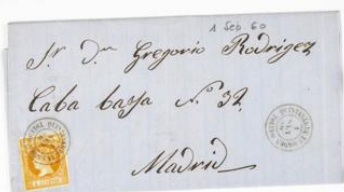 1 Feb 60
Sr. Dn. Gregorio Rodrigez
Caba bassa Nº 32
Madrid